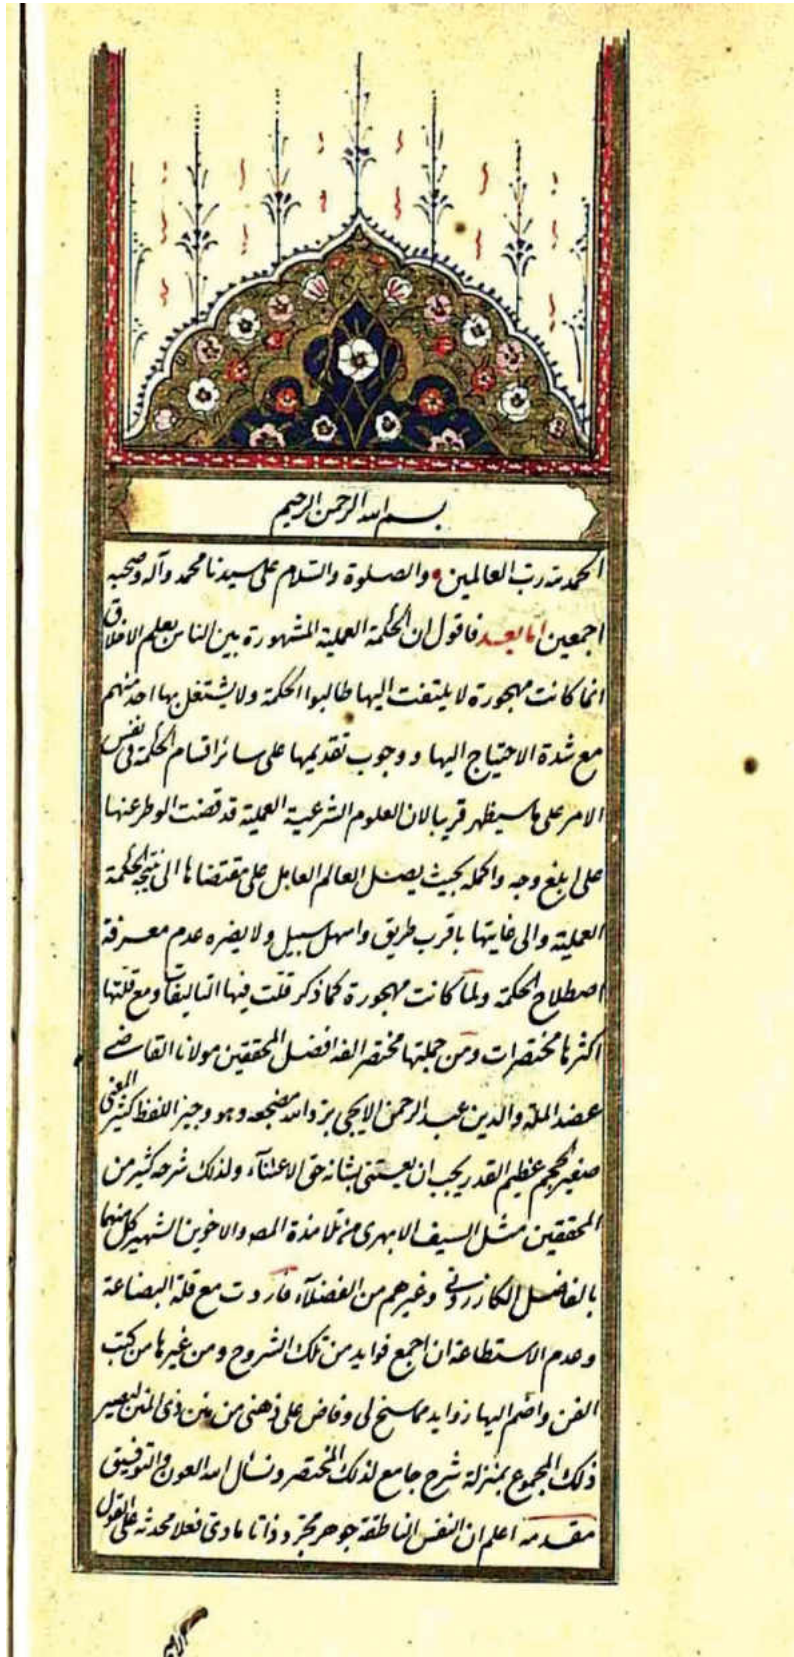 بسم الله الرحمن الرحيم
الحمد لله رب العالمين والصلوة والسلام على سيدنا محمد وآله وصحبه
اجمعين اما بعد فاقول ان الحكمة العملية المشهورة بين الناس بعلم الاخلاق
انما كانت مهجورة لا يلتفت اليها طالبوا الحكمة ولا يشتغل بها احد منهم
مع شدة الاحتياج اليها ووجوب تقديمها على سائر اقسام الحكمة فى نفس
الامر على ما سيظهر قريبا لان العلوم الشرعية العملية قد قضت الوطر عنها
على ابلغ وجه واكمله بحيث يصل العالم العامل على مقتضاها الى نتيجة الحكمة
العملية والى غايتها باقرب طريق واسهل سبيل ولا يضره عدم معرفة
اصطلاح الحكمة ولما كانت مهجورة كما ذكر قلت فيها التاليفات ومع قلتها
اكثرها مختصرات ومن جملتها مختصر الفه افضل المحققين مولانا القاضى
عضد الملة والدين عبد الرحمن الايجى برد الله مضجعه وهو وجيز اللفظ كثير المعنى
صغير الحجم عظيم القدر يجب ان يعتنى بشانه حق الاعتناء ولذلك شرحه كثير من
المحققين مثل السيف الابهرى من تلامذة المصه والاخوين الشهير كل منهما
بالفاضل الكازرونى وغيرهم من الفضلاء فاردت مع قلة البضاعة
وعدم الاستطاعة ان اجمع فوايد من تلك الشروح ومن غيرها من كتب
الفن واضم اليها زوايد مما سنح لى وفاض على ذهنى من منن ذى المنن ليصير
ذلك المجموع بمنزلة شرح جامع لذلك المختصر ونسأل الله العون والتوفيق
مقدمه اعلم ان النفس الناطقة جوهر مجرد ذاتا مادى فعلا محدثه على القول